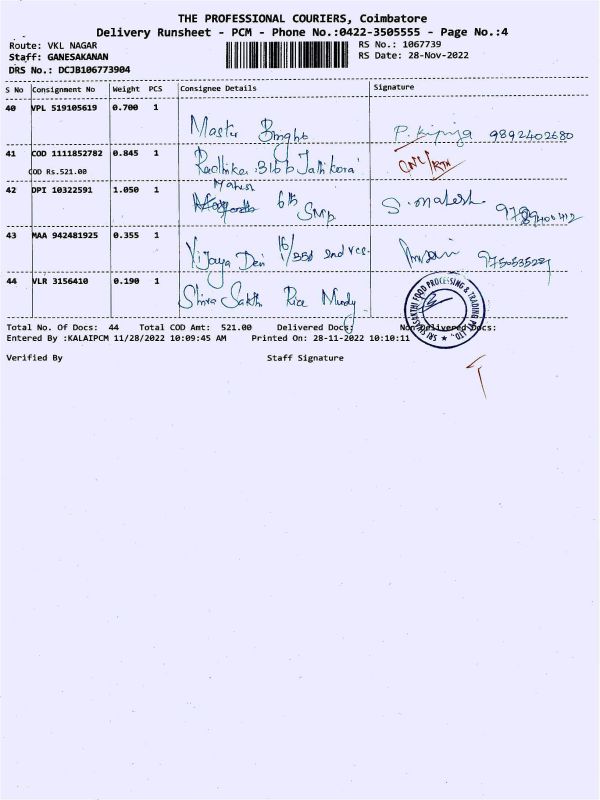 THE PROFESSIONAL COURIERS, Coimbatore
Delivery Runsheet - PCM - Phone No.:0422-3505555 - Page No.:4
Route: VKL NAGAR RS No.: 1067739
Staff: GANESAKANAN RS Date: 28-Nov-2022
DRS No.: DCJB106773904
S No Consignment No Weight PCS Consignee Details Signature
40 VPL 519105619 0.700 1
Master 9892402680
41 COD 1111852782 0.845 1
Radhika
COD Rs.521.00
42 DPI 10322591 1.050 1
Mahesh
6th SMP S. mahesh
43 MAA 942481925 0.355 1
Vijaya Devi 2nd
44 VLR 3156410 0.190 1
Shiva Sakthi Rice Mundy
SRI SIVASAKTHI FOOD PROCESSING & TRADING
Total No. Of Docs: 44 Total COD Amt: 521.00 Delivered Docs: Non-Delivered Docs:
Entered By :KALAIPCM 11/28/2022 10:09:45 AM Printed On: 28-11-2022 10:10:11
Verified By Staff Signature